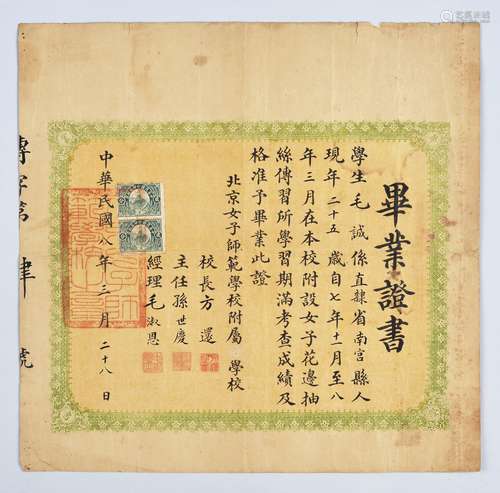 畢業證書
學生毛誠係直隸省南宮縣人
現年二十五歲自七年十一月至八
年三月在本校附設女子花邊抽
絲傳習所學習期滿考查成績及
格准予畢業此證
北京女子師範學校附屬學校
校長方還
主任孫世慶
經理毛淑恩
中華民國八年三月二十八日
傳字第肆號